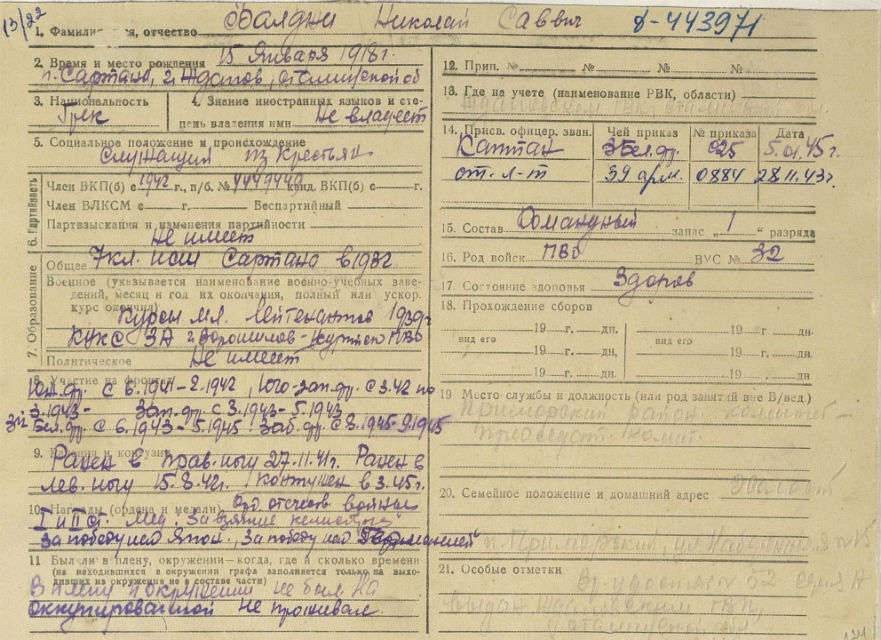 13/22
Николай Саввич
1. Фамилия, отчество
2. Время и место рождения 15 Января 1918г.
п. Сартана, г. Жданов, Сталинской об
3. Национальность Грек
4. Знание иностранных языков и степень владения ими Не владеет
5. Социальное положение и происхождение
Служащий из Крестьян
6. Партийность
Член ВКП(б) с 1942 г., п/б. № канд. ВКП(б) с г.
Член ВЛКСМ с г. Беспартийный
Партвзыскания и изменения партийности
Не имеет
7. Образование
Общее 7 кл. Сартана в 1932
Военное (указывается наименование военно-учебных заве-
дений, месяц и год их окончания, полный или ускор.
курс окончил) Курсы мл. лейтенантов 1939г
КУКС ЗА г. Ворошилов-
Политическое Не имеет
Участие на фронтах
Юж. фр. с 6.1941-2.1942, Юго-зап. фр. с 3.42 по
3.1943- Зап. фр. с 3.1943-5.1943
Бел. фр. с 6.1943-5.1945 Заб. фр. с 8.1945-9.1945
9. Ранения и контузии
Ранен в прав. ногу 27.11.41г. Ранен в
лев. ногу 15.8.42г. Контужен в 3.45г.
10. Награды (ордена и медали) Орд. отечеств. войны
I и II ст. Мед. За взятие Кенигсберга
За победу над Япон., За победу над Германией
11 Был ли в плену, окружении—когда, где и сколько времени
(на находившихся в окружении графа заполняется только на выхо-
дивших из окружения не в составе части)
В плену и окружении не был. На
оккупированной не проживал.
12. Прип. № № № №
13. Где на учете (наименование РВК, области)
14. Присв. офицер. зван. Чей приказ № приказа Дата
Капитан 3 Бел. фр. 025 5.01.45г.
ст. л-т 39 арм. 0884 28.11.43г.
15. Состав Командный запас „ 1 “ разряда
16. Род войск ПВО ВУС № 32
17. Состояние здоровья Здоров
18. Прохождение сборов
19 г. дн. 19 г дн.
вид его вид его
19 г. дн, 19 г. дн.
19 г. дн. 19 г. дн
19 Место службы и должность (или род занятий вне В/вед.)
Приморский район.
20. Семейное положение и домашний адрес
п. Приморский,
21. Особые отметки